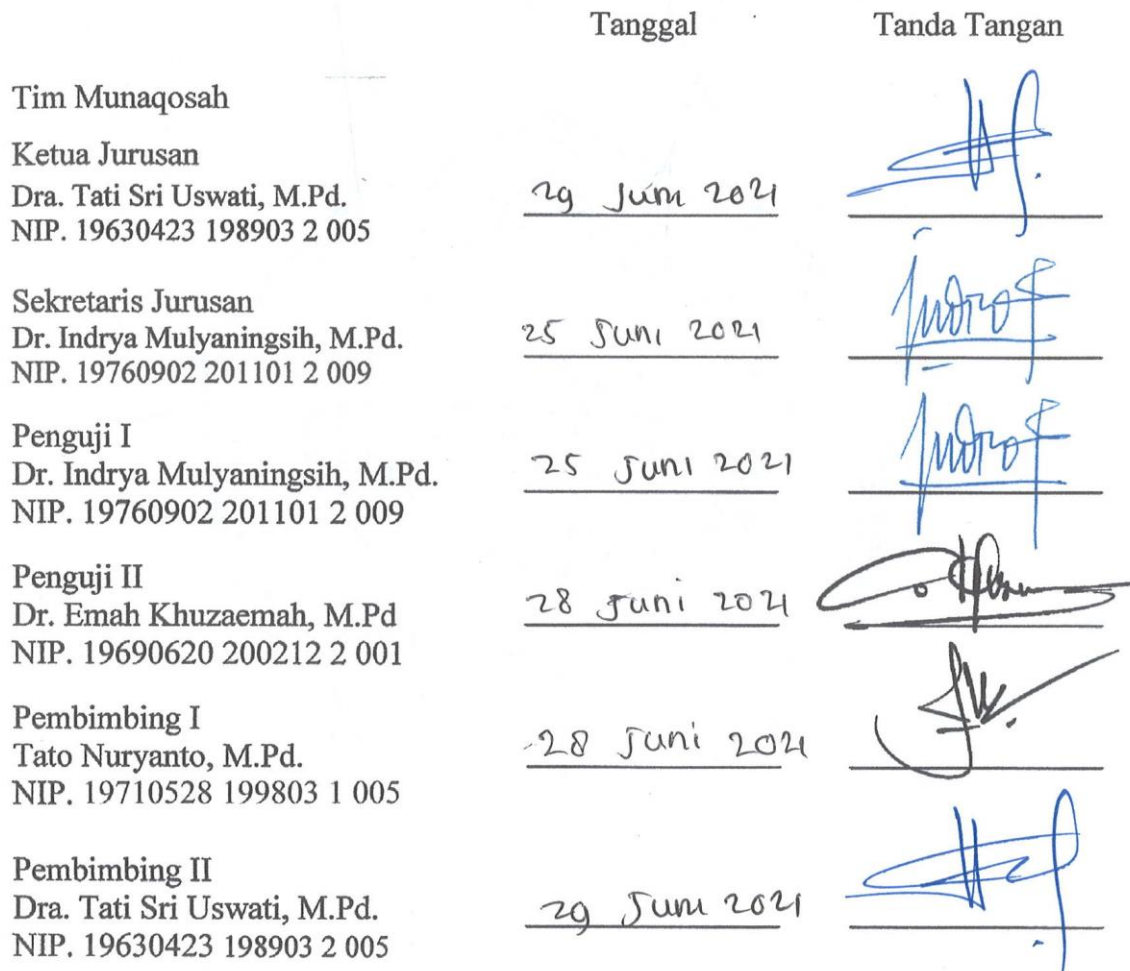 Tanggal Tanda Tangan
Tim Munaqosah
Ketua Jurusan
Dra. Tati Sri Uswati, M.Pd.
NIP. 19630423 198903 2 005
29 Juni 2021
Sekretaris Jurusan
Dr. Indrya Mulyaningsih, M.Pd.
NIP. 19760902 201101 2 009
25 Juni 2021
Penguji I
Dr. Indrya Mulyaningsih, M.Pd.
NIP. 19760902 201101 2 009
25 Juni 2021
Penguji II
Dr. Emah Khuzaemah, M.Pd
NIP. 19690620 200212 2 001
28 Juni 2021
Pembimbing I
Tato Nuryanto, M.Pd.
NIP. 19710528 199803 1 005
28 Juni 2021
Pembimbing II
Dra. Tati Sri Uswati, M.Pd.
NIP. 19630423 198903 2 005
29 Juni 2021